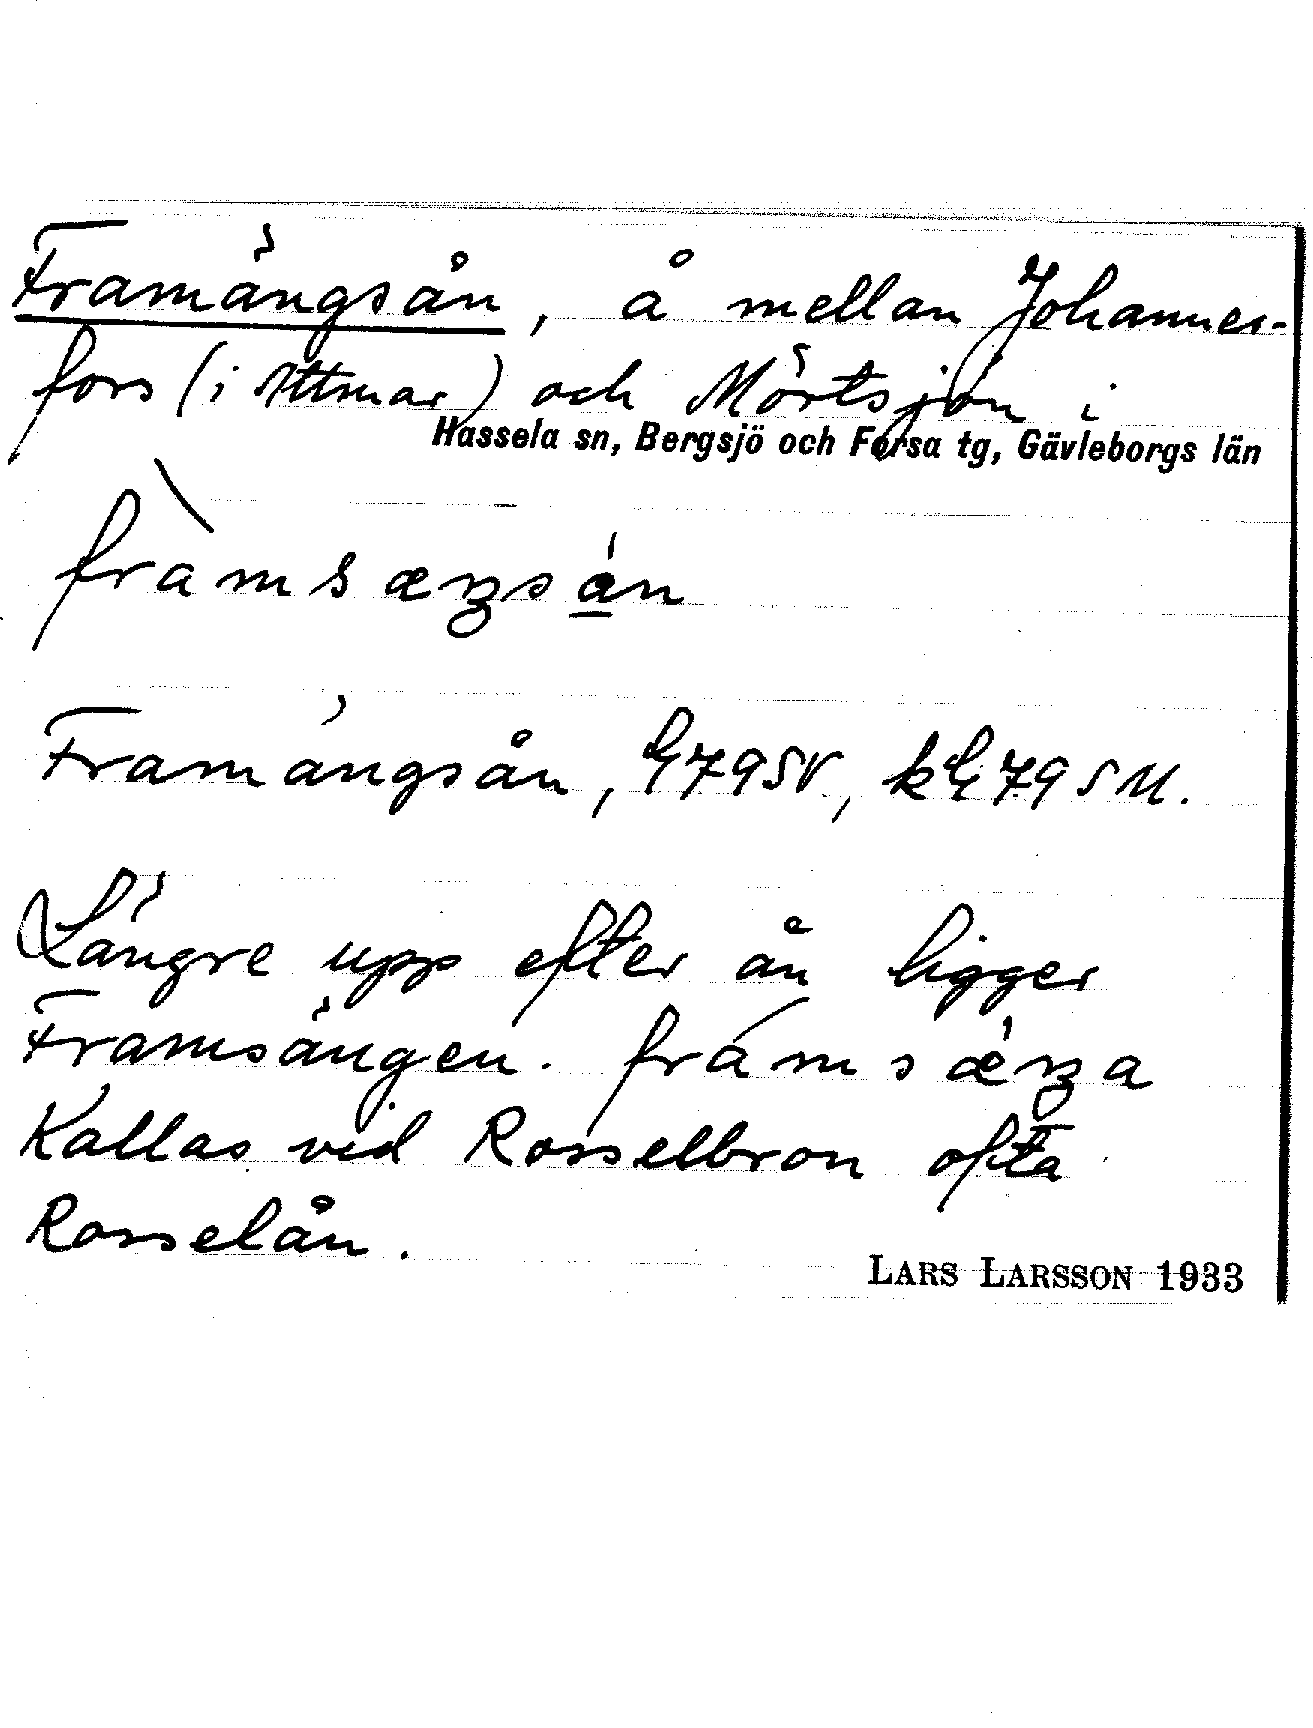 Framängsån, å mellan Johannes-
fors (i Attmar) och Mörtsjön i
Hassela sn, Bergsjö och Forsa tg, Gävleborgs län
framsæŋsån
Framängsån, G795V, kG795M.
Längre upp efter ån ligger
Framsängen. framsæŋa
Kallas vid Rosselbron ofta
Rosselån.
LARS LARSSON 1933